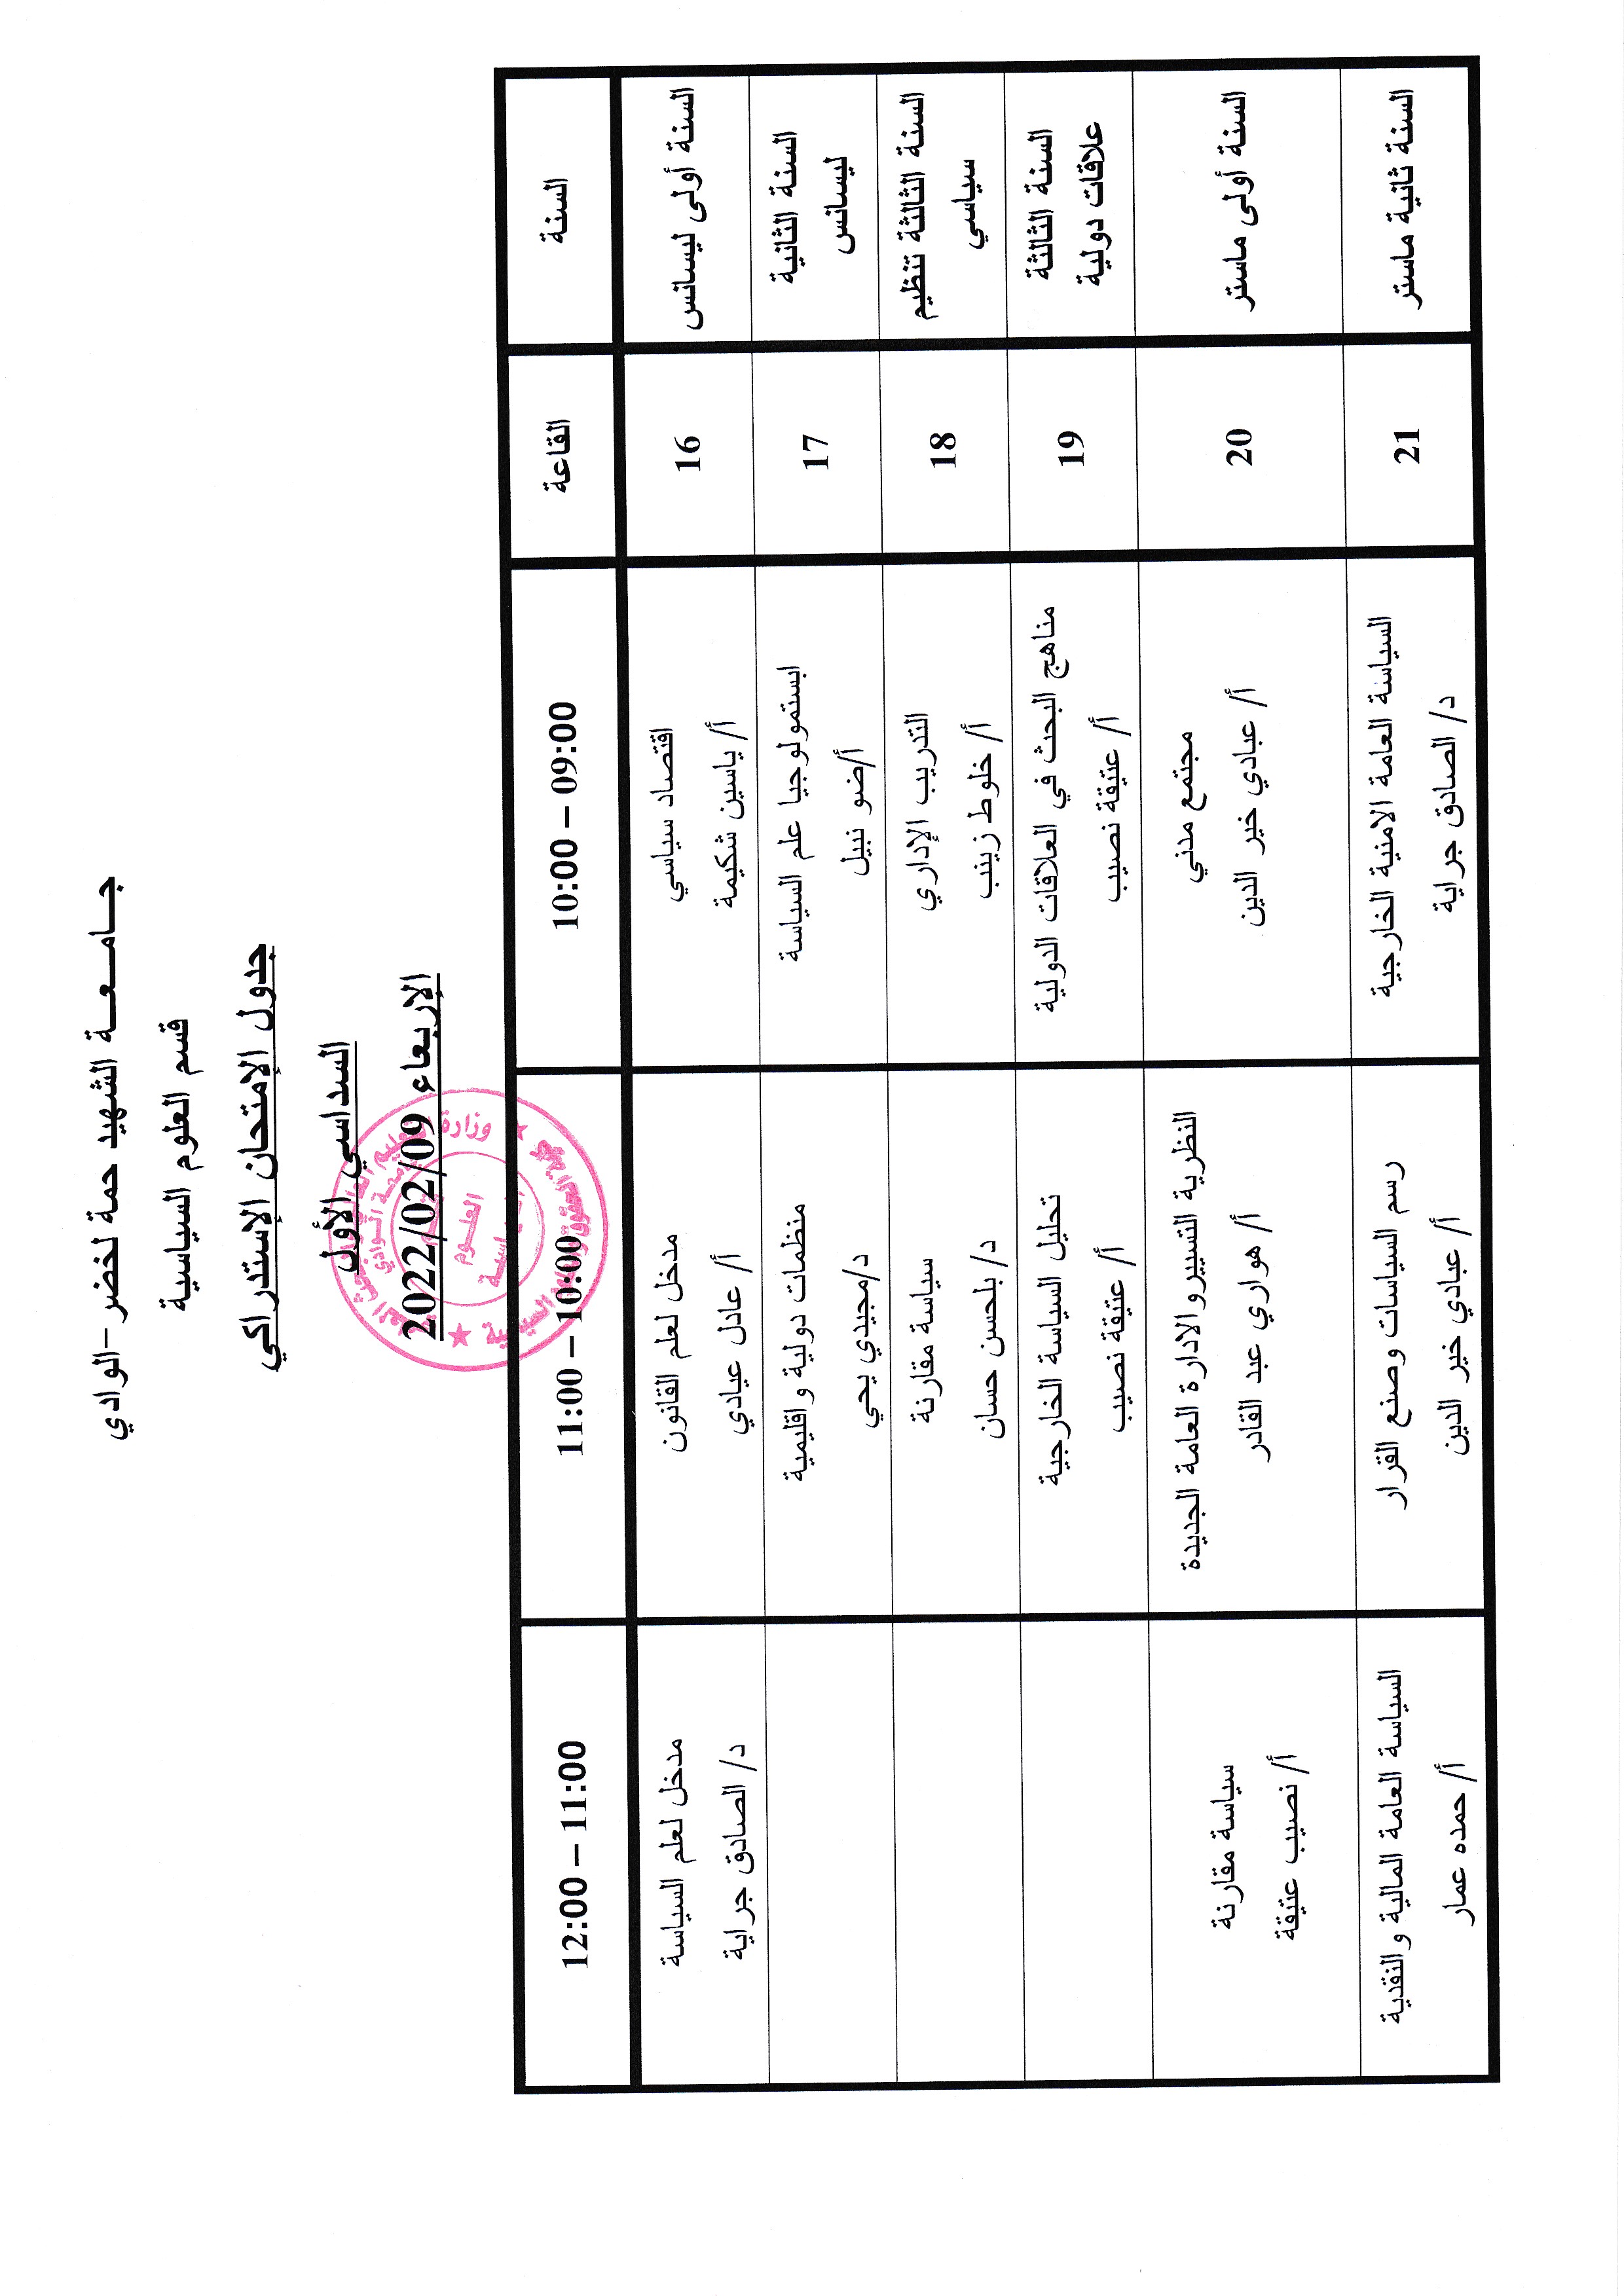 جـــامـــعـــة الشهيد حمة لخضر –الوادي
قسم العلوم السياسية
جدول الإمتحان الإستدراكي
السداسي الأول
الإربعاء 2022/02/09
السنة
القاعة
10:00 – 09:00
11:00 – 10:00
12:00 – 11:00
السنة أولى ليسانس
16
اقتصاد سياسي
أ/ ياسين شكيمة
مدخل لعلم القانون
أ/ عادل عيادي
مدخل لعلم السياسة
د/ الصادق جراية
السنة الثانية
ليسانس
17
ابستمولوجيا علم السياسة
أ/ضو نبيل
منظمات دولية واقليمية
د/مجيدي يحي
السنة الثالثة تنظيم
سياسي
18
التدريب الإداري
أ/ خلوط زينب
سياسة مقارنة
د/ بلحسن حسان
السنة الثالثة
علاقات دولية
19
مناهج البحث في العلاقات الدولية
أ/ عتيقة نصيب
تحليل السياسة الخارجية
أ/ عتيقة نصيب
السنة أولى ماستر
20
مجتمع مدني
أ/ عبادي خير الدين
النظرية التسييرو الادارة العامة الجديدة
أ/ هواري عبد القادر
سياسة مقارنة
أ/ نصيب عتيقة
السنة ثانية ماستر
21
السياسة العامة الامنية الخارجية
د/ الصادق جراية
رسم السياسات وصنع القرار
أ/ عبادي خير الدين
السياسة العامة المالية والنقدية
أ/ حمده عمار